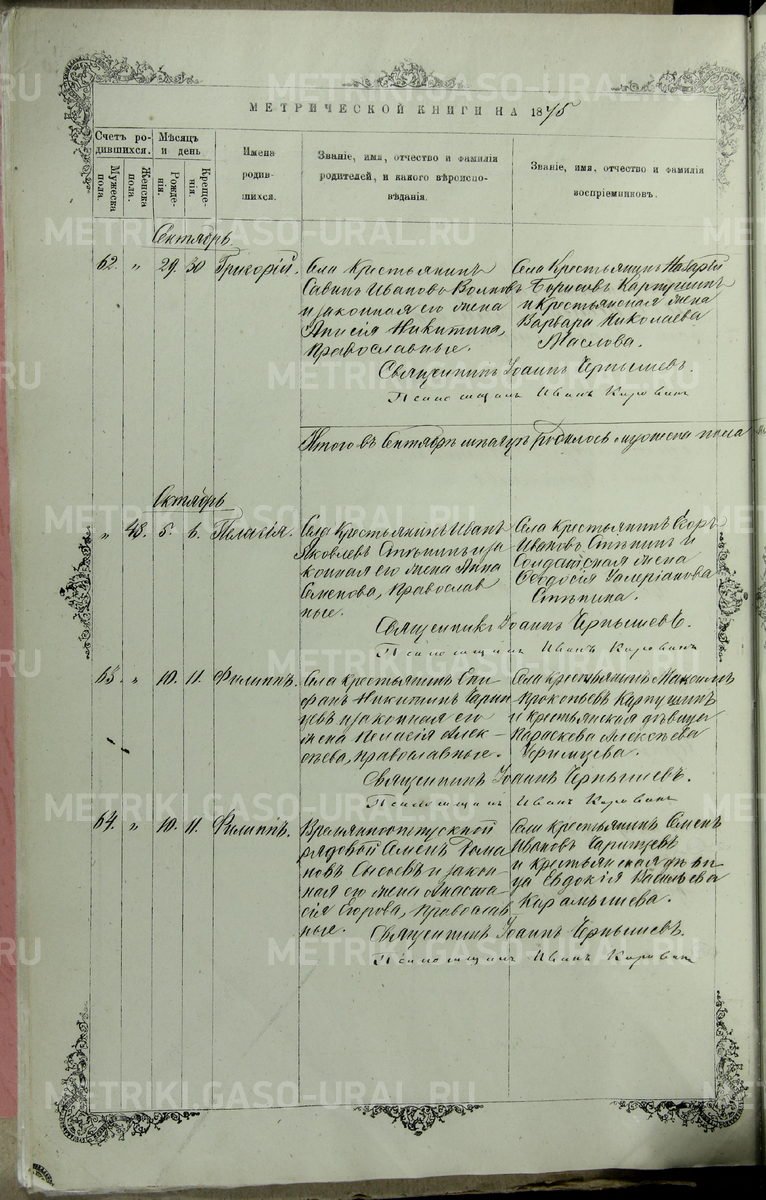 МЕТРИЧЕСКОЙ КНИГИ НА 1875
Счетъ ро-
дившихся.
Мѣсяцъ
и день
Мужеска
пола.
Женска
пола.
Рожде-
нія.
Креще-
нія.
Имена
родив-
шихся.
Званіе, имя, отчество и фамилія
родителей, и какого вѣроиспо-
вѣданія.
Званіе, имя, отчество и фамилія
воспріемниковъ.
Сентябрь
62. „ 29. 30 Григорій.
Села Крестьянинъ
Савинъ Ивановъ Волковъ
и законная его жена
Анисія Никитина,
Православные.
Села Крестьянинъ Назарій
Борисовъ Карпушинъ
и Крестьянская жена
Варвара Николаева
Маслова.
Священникъ Іоаннъ Чернышевъ.
Псаломщикъ Иванъ Кировинъ
Итого въ Сентябрѣ мѣсяцѣ родилось мужеска пола
Октябрь
„ 48. 5. 6. Пелагія.
Села Крестьянинъ Иванъ
Яковлевъ Стѣнинъ и за
конная его жена Анна
Семенова, Православ
ные.
Села Крестьянинъ Егоръ
Ивановъ Стѣнинъ и
Солдатская жена
Феодосія Валеріанова
Стѣнина.
Священникъ Іоаннъ Чернышевъ.
Псаломщикъ Иванъ Кировинъ
63. „ 10. 11. Филиппъ.
Села крестьянинъ Епи
фанъ Никитинъ Чарин
цевъ и законная его
жена Пелагія Алек-
сѣева, православные.
Села крестьянинъ Максимъ
Прокопьевъ Карпушинъ
и крестьянская дѣвица
Параскева Алексѣева
Священникъ Іоаннъ Чернышевъ.
Псаломщикъ Иванъ Кировинъ
64. „ 10. 11. Филиппъ.
Временноотпускной
рядовой Семенъ Рома
новъ Сысоевъ и закон
ная его жена Анаста
сія Егорова, Православ
ные.
Села крестьянинъ Семенъ
Ивановъ Чаринцевъ
и крестьянская дѣви
ца Евдокія Васильева
Карамышева.
Священникъ Іоаннъ Чернышевъ.
Псаломщикъ Иванъ Кировинъ
METRIKI.GASO-URAL.RU